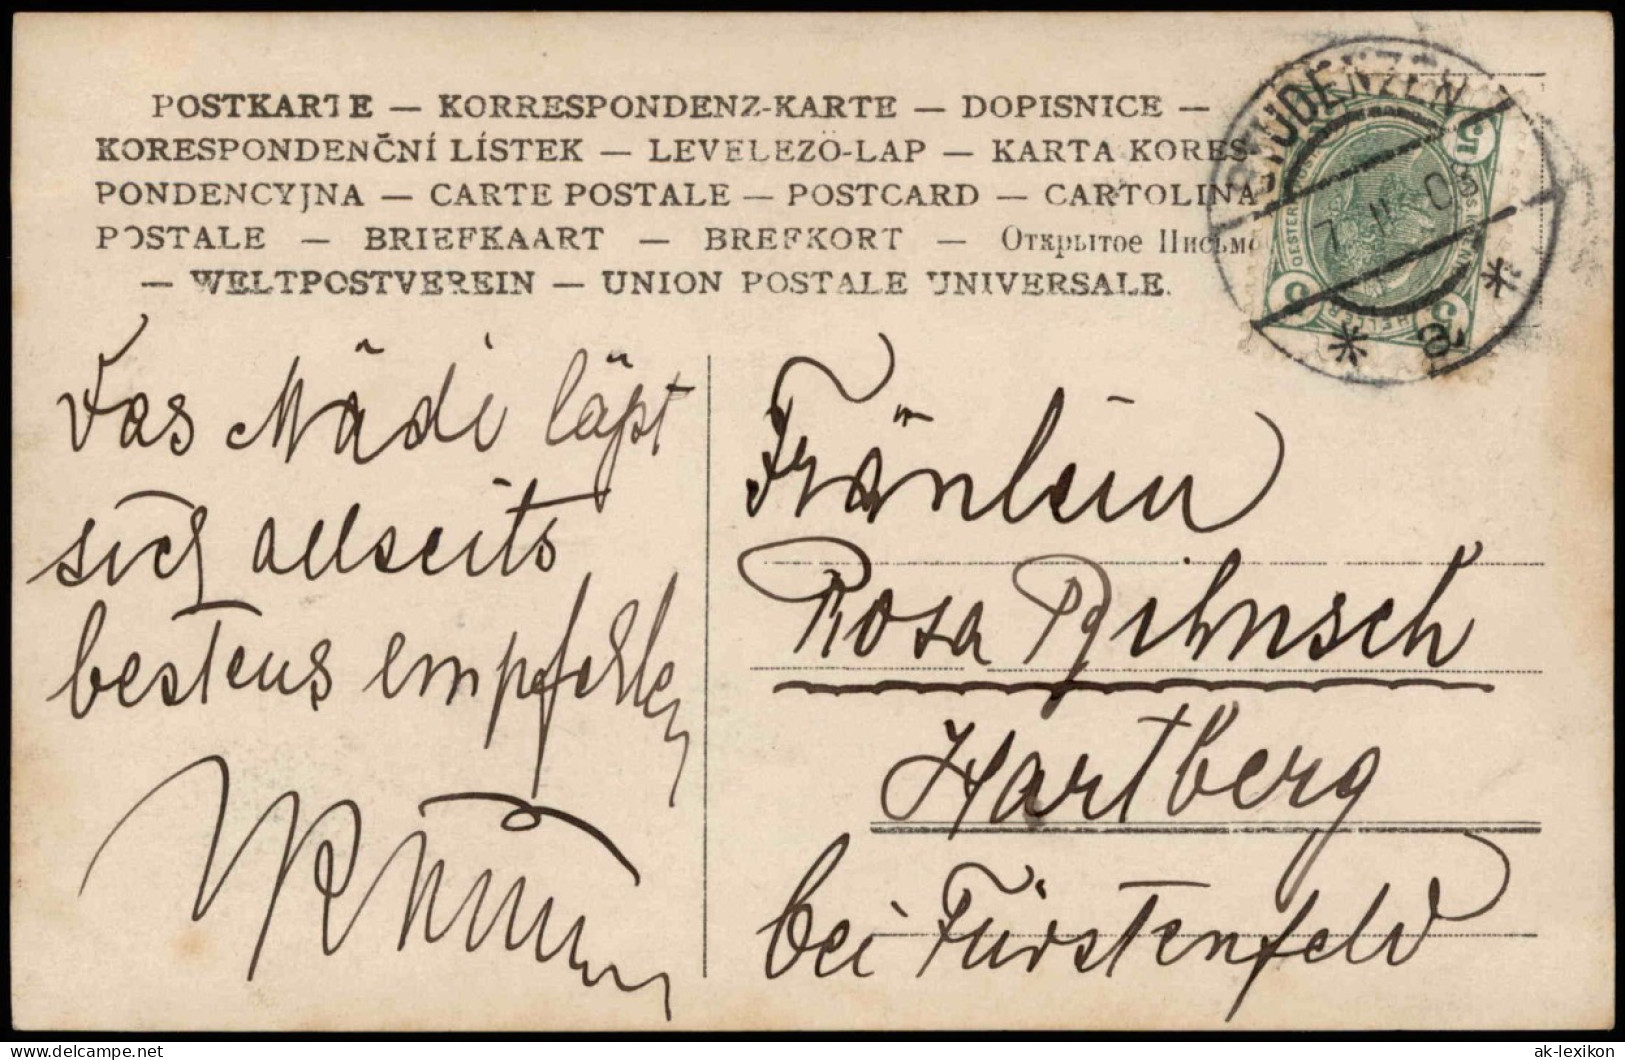 POSTKARTE — KORRESPONDENZ-KARTE — DOPISNICE —
KORESPONDENČNÍ LÍSTEK — LEVELEZÖ-LAP — KARTA KORES-
PONDENCYJNA — CARTE POSTALE — POSTCARD — CARTOLINA
POSTALE — BRIEFKAART — BREFKORT — Открытое Письмо
— WELTPOSTVEREIN — UNION POSTALE UNIVERSALE.
STUDENZEN
7. II. 0
a
5
5
5
HELLER
Das Mädi läßt
sich allseits
bestens empfehlen
Fräulein
Rosa
Hartberg
bei Fürstenfeld
ak-lexikon
the-collection.com